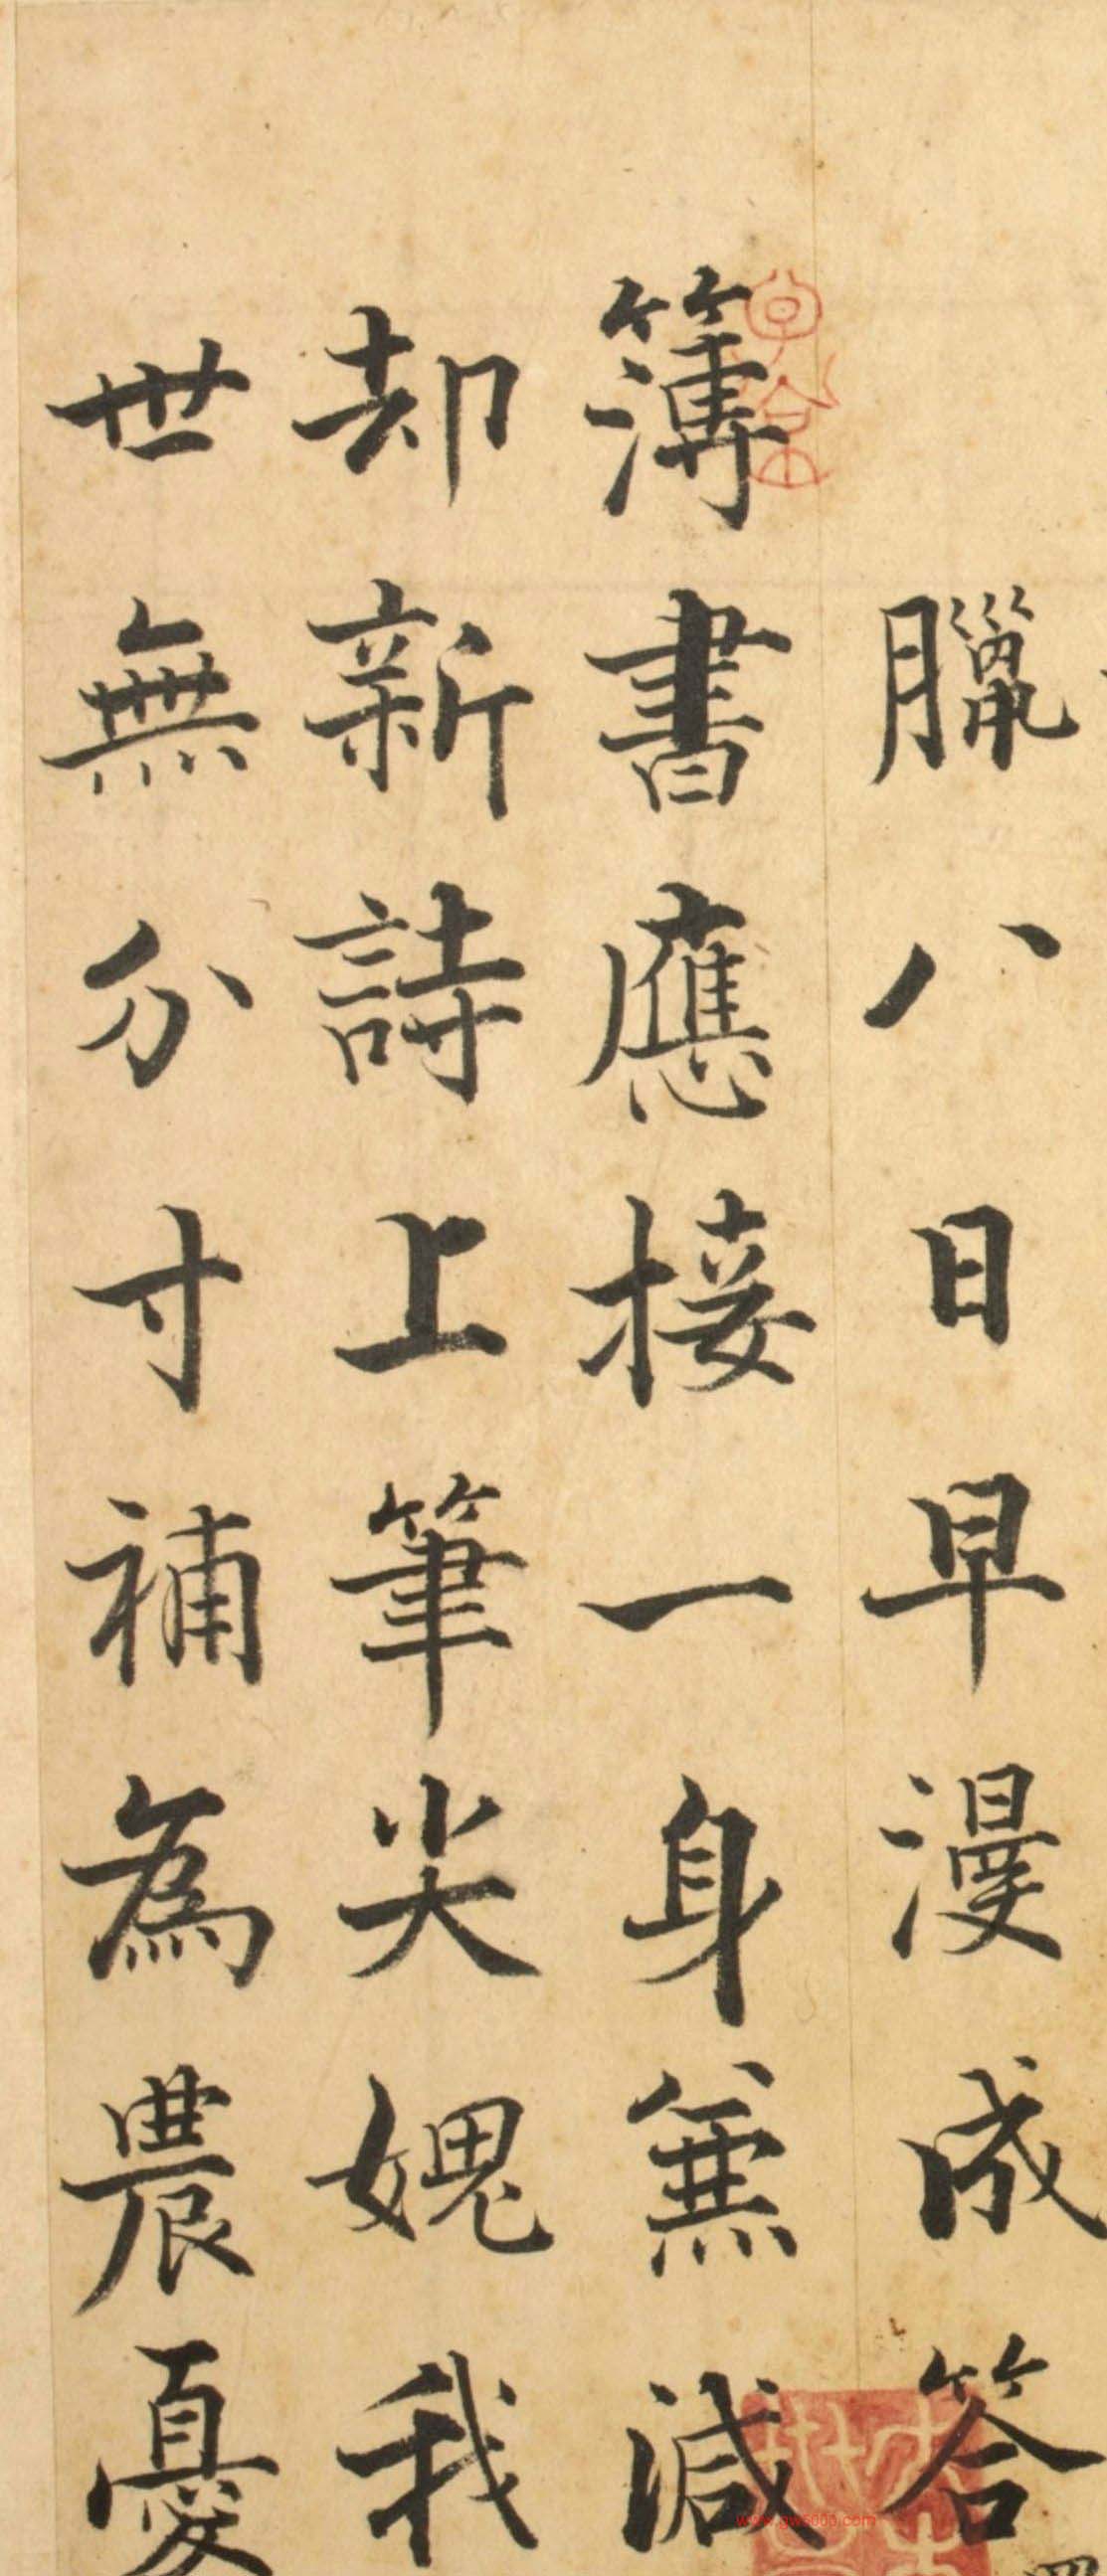 臘八日早漫成答
簿書應接一身無減
却新詩上筆尖媿我
世無分寸補為農憂
www.gw5000.com